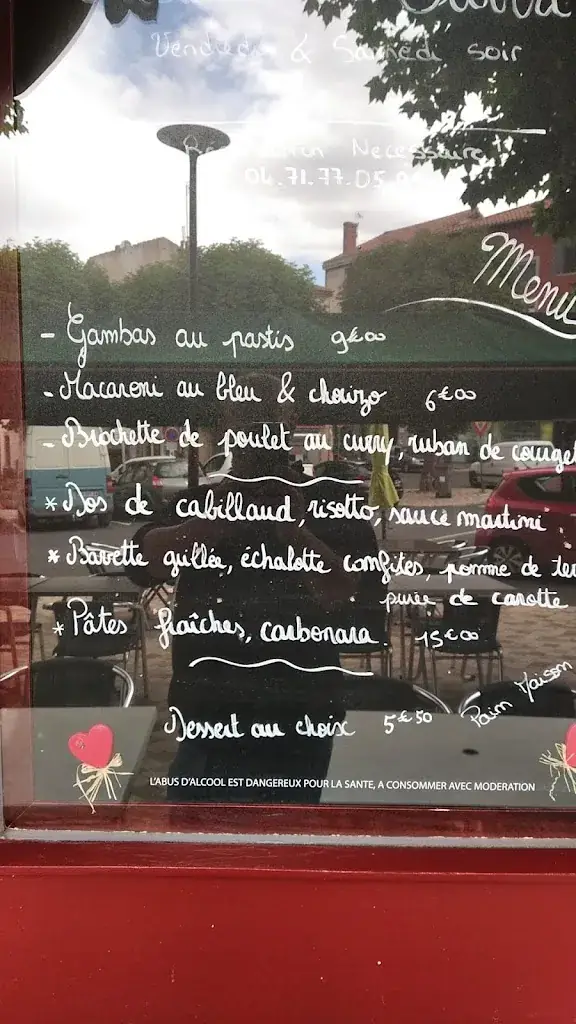 Vendredi & Samedi soir
Necessaire
04.71.77.05
Menu
- Gambas au pastis 9€00
- Macaroni au bleu & chorizo 6€00
- Brochette de poulet au curry, ruban de courget
* Dos de cabillaud, risotto, sauce martini
* Bavette grillée, échalotte confites, pomme de ter
purée de carotte
* Pâtes fraîches, carbonara 15€00
Dessert au choix 5€50
Pain Maison
L'ABUS D'ALCOOL EST DANGEREUX POUR LA SANTE, A CONSOMMER AVEC MODERATION